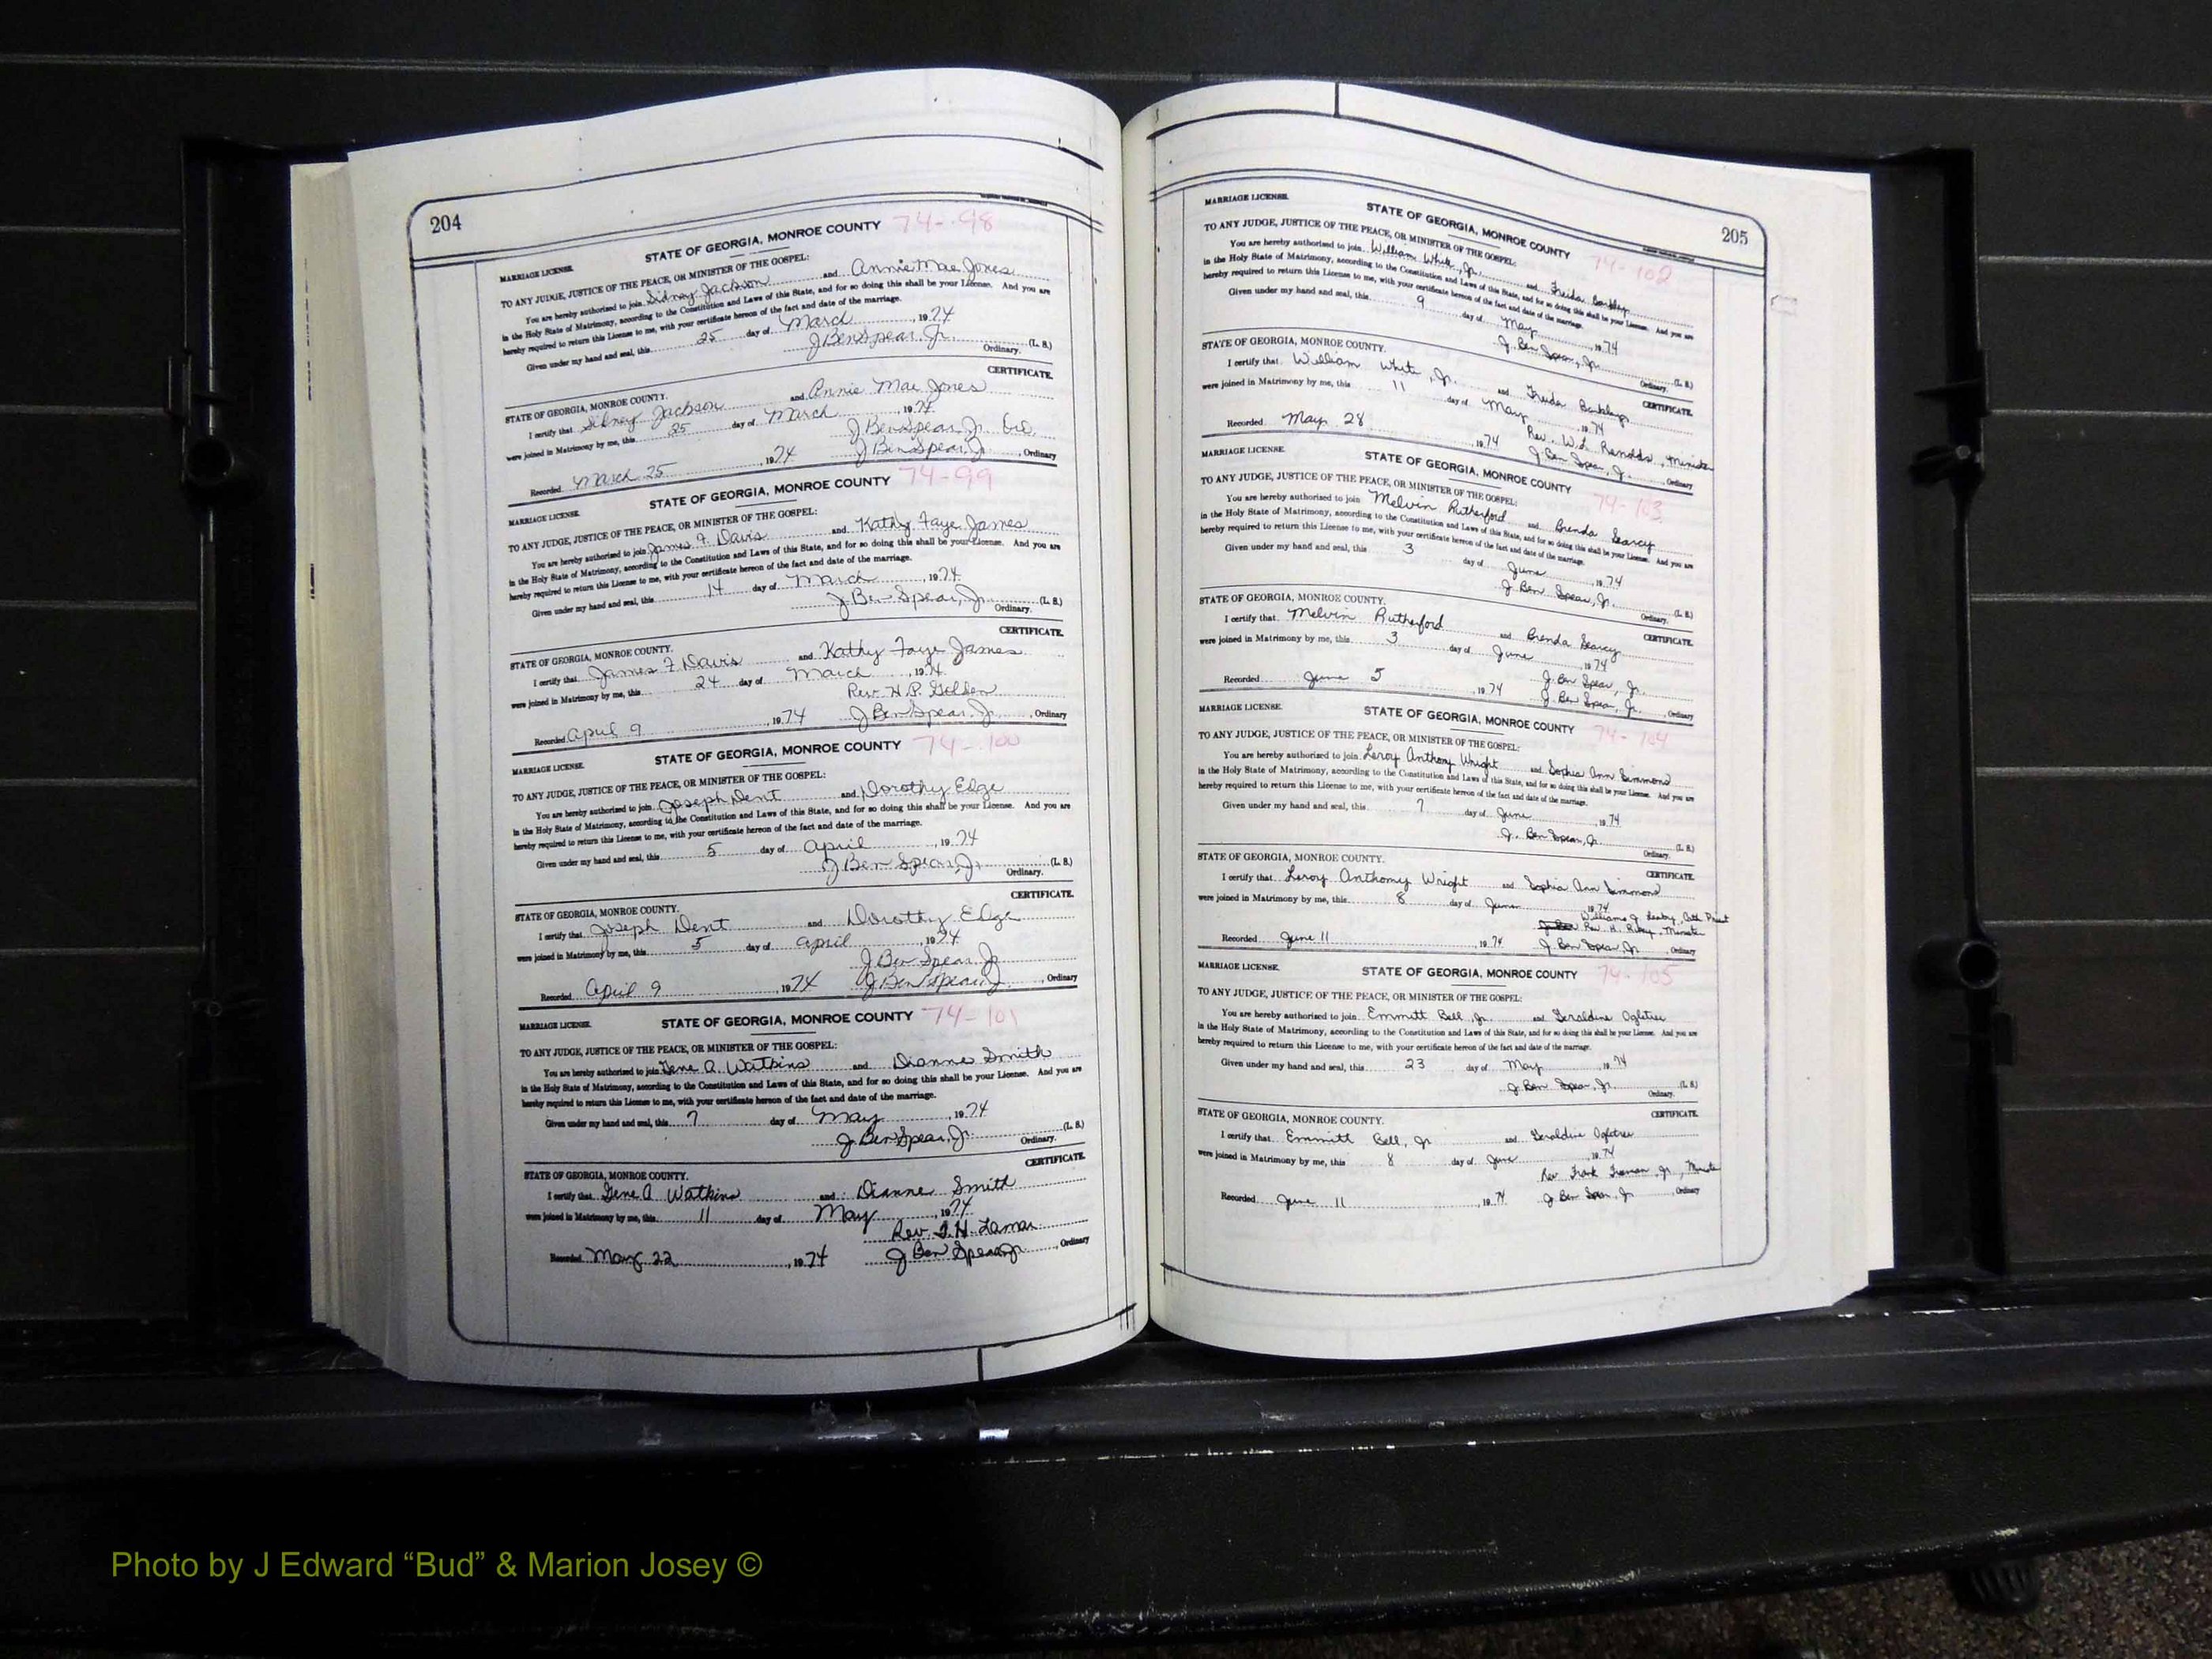 204
STATE OF GEORGIA, MONROE COUNTY 74-98
MARRIAGE LICENSE.
TO ANY JUDGE, JUSTICE OF THE PEACE, OR MINISTER OF THE GOSPEL:
You are hereby authorized to join Sidney Jackson and Annie Mae Jones
in the Holy State of Matrimony, according to the Constitution and Laws of this State, and for so doing this shall be your License. And you are
hereby required to return this License to me, with your certificate hereon of the fact and date of the marriage.
Given under my hand and seal, this 25 day of March, 1974
J Ben Spear, Jr. (L. S.)
Ordinary.
CERTIFICATE.
STATE OF GEORGIA, MONROE COUNTY.
I certify that Sidney Jackson and Annie Mae Jones
were joined in Matrimony by me, this 25 day of March, 1974
J Ben Spear, Jr.
Recorded March 25, 1974 J Ben Spear, Jr, Ordinary
STATE OF GEORGIA, MONROE COUNTY 74-99
MARRIAGE LICENSE.
TO ANY JUDGE, JUSTICE OF THE PEACE, OR MINISTER OF THE GOSPEL:
You are hereby authorized to join James F. Davis and Kathy Faye James
in the Holy State of Matrimony, according to the Constitution and Laws of this State, and for so doing this shall be your License. And you are
hereby required to return this License to me, with your certificate hereon of the fact and date of the marriage.
Given under my hand and seal, this 14 day of March, 1974
J Ben Spear, Jr. (L. S.)
Ordinary.
CERTIFICATE.
STATE OF GEORGIA, MONROE COUNTY.
I certify that James F Davis and Kathy Faye James
were joined in Matrimony by me, this 24 day of March, 1974
Rev. H.P. Golden
Recorded April 9, 1974 J Ben Spear, Jr., Ordinary
STATE OF GEORGIA, MONROE COUNTY 74-100
MARRIAGE LICENSE.
TO ANY JUDGE, JUSTICE OF THE PEACE, OR MINISTER OF THE GOSPEL:
You are hereby authorized to join Joseph Dent and Dorothy Edge
in the Holy State of Matrimony, according to the Constitution and Laws of this State, and for so doing this shall be your License. And you are
hereby required to return this License to me, with your certificate hereon of the fact and date of the marriage.
Given under my hand and seal, this 5 day of April, 1974
J Ben Spear, Jr (L. S.)
Ordinary.
CERTIFICATE.
STATE OF GEORGIA, MONROE COUNTY.
I certify that Joseph Dent and Dorothy Edge
were joined in Matrimony by me, this 5 day of April, 1974
J Ben Spear Jr
Recorded April 9, 1974 J Ben Spear, Jr, Ordinary
MARRIAGE LICENSE. STATE OF GEORGIA, MONROE COUNTY 74-101
TO ANY JUDGE, JUSTICE OF THE PEACE, OR MINISTER OF THE GOSPEL:
You are hereby authorized to join Gene A. Watkins and Dianne Smith
in the Holy State of Matrimony, according to the Constitution and Laws of this State, and for so doing this shall be your License. And you are
hereby required to return this License to me, with your certificate hereon of the fact and date of the marriage.
Given under my hand and seal, this 7 day of May, 1974
J Ben Spear, Jr. (L. S.)
Ordinary.
CERTIFICATE.
STATE OF GEORGIA, MONROE COUNTY.
I certify that Gene A Watkins and Dianne Smith
were joined in Matrimony by me, this 11 day of May, 1974
Rev. H. Lamar
Recorded May 22, 1974 J Ben Spear, Jr, Ordinary
205
MARRIAGE LICENSE. STATE OF GEORGIA, MONROE COUNTY 74-102
TO ANY JUDGE, JUSTICE OF THE PEACE, OR MINISTER OF THE GOSPEL:
You are hereby authorized to join William White, Jr. and Freida
in the Holy State of Matrimony, according to the Constitution and Laws of this State, and for so doing this shall be your License. And you are
hereby required to return this License to me, with your certificate hereon of the fact and date of the marriage.
Given under my hand and seal, this 9 day of May, 1974
J. Ben Spear, Jr. (L. S.)
Ordinary.
STATE OF GEORGIA, MONROE COUNTY. CERTIFICATE.
I certify that William White, Jr. and Freida
were joined in Matrimony by me, this 11 day of May, 1974
Rev. W.L. Minister
Recorded May 28, 1974 J Ben Spear, Jr., Ordinary
MARRIAGE LICENSE. STATE OF GEORGIA, MONROE COUNTY 74-103
TO ANY JUDGE, JUSTICE OF THE PEACE, OR MINISTER OF THE GOSPEL:
You are hereby authorized to join Melvin Rutherford and Brenda Searcy
in the Holy State of Matrimony, according to the Constitution and Laws of this State, and for so doing this shall be your License. And you are
hereby required to return this License to me, with your certificate hereon of the fact and date of the marriage.
Given under my hand and seal, this 3 day of June, 1974
J Ben Spear, Jr. (L. S.)
Ordinary.
STATE OF GEORGIA, MONROE COUNTY. CERTIFICATE.
I certify that Melvin Rutherford and Brenda Searcy
were joined in Matrimony by me, this 3 day of June, 1974
J. Ben Spear, Jr.
Recorded June 5, 1974 J. Ben Spear, Jr., Ordinary
MARRIAGE LICENSE. STATE OF GEORGIA, MONROE COUNTY 74-104
TO ANY JUDGE, JUSTICE OF THE PEACE, OR MINISTER OF THE GOSPEL:
You are hereby authorized to join Leroy Anthony Wright and Sophia Ann Simmons
in the Holy State of Matrimony, according to the Constitution and Laws of this State, and for so doing this shall be your License. And you are
hereby required to return this License to me, with your certificate hereon of the fact and date of the marriage.
Given under my hand and seal, this 7 day of June, 1974
J. Ben Spear, Jr. (L. S.)
Ordinary.
STATE OF GEORGIA, MONROE COUNTY. CERTIFICATE.
I certify that Leroy Anthony Wright and Sophia Ann Simmons
were joined in Matrimony by me, this 8 day of June, 1974
Rev. H. Minister
Recorded June 11, 1974 J. Ben Spear, Jr., Ordinary
MARRIAGE LICENSE. STATE OF GEORGIA, MONROE COUNTY 74-105
TO ANY JUDGE, JUSTICE OF THE PEACE, OR MINISTER OF THE GOSPEL:
You are hereby authorized to join Emmitt Bell, Jr. and Geraldine Ogletree
in the Holy State of Matrimony, according to the Constitution and Laws of this State, and for so doing this shall be your License. And you are
hereby required to return this License to me, with your certificate hereon of the fact and date of the marriage.
Given under my hand and seal, this 23 day of May, 1974
J Ben Spear, Jr. (L. S.)
Ordinary.
STATE OF GEORGIA, MONROE COUNTY. CERTIFICATE.
I certify that Emmitt Bell, Jr and Geraldine Ogletree
were joined in Matrimony by me, this 8 day of June, 1974
Rev Frank Jr,
Recorded June 11, 1974 J Ben Spear, Jr, Ordinary
Photo by J Edward “Bud” & Marion Josey ©